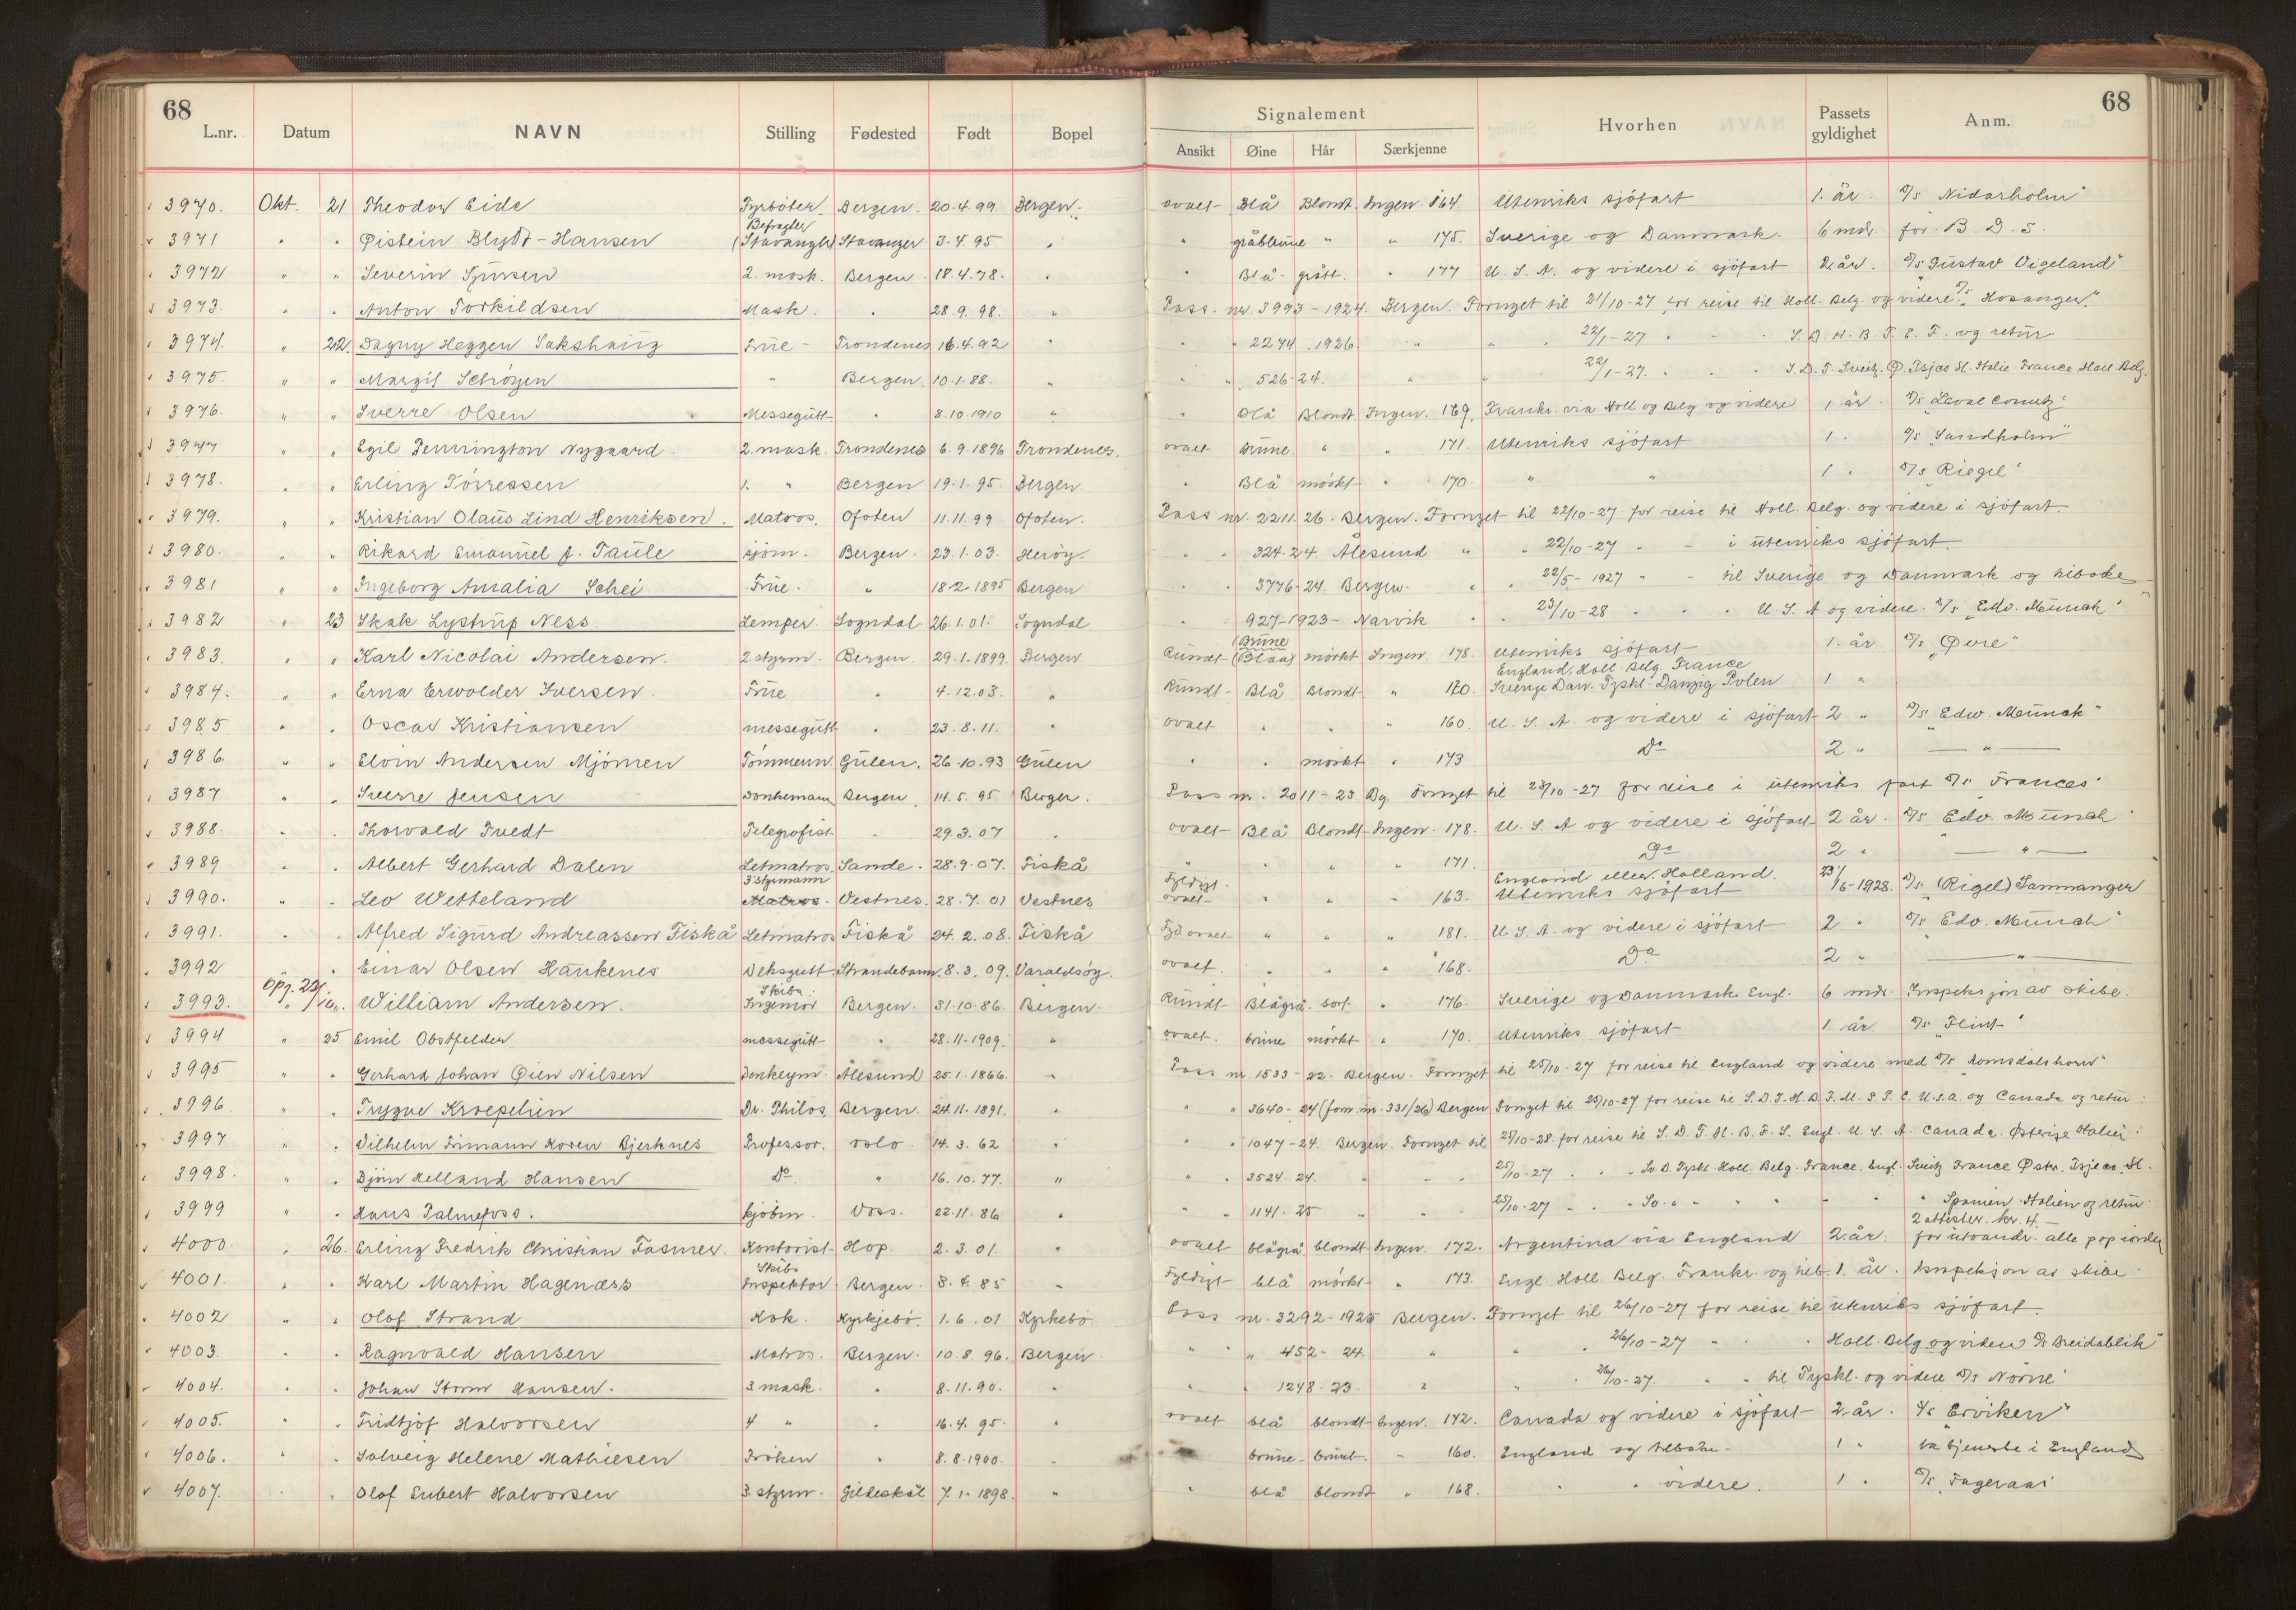 68
L.nr. Datum NAVN Stilling Fødested Født Bopel Signalement Ansikt Øine Hår Særkjenne Hvorhen Passets gyldighet Anm.
68
3970. Okt. 21 Theodor Eide Fyrbøter Bergen. 20.4.99 Bergen. ovalt Blå Blondt Ingen 164. Utenriks sjøfart 1. år. D/s Nidarholm"
3971 " " Øistein Blydt-Hansen Befragter (Stavanger) Stavanger 3.4.95 " " gråbleune " " 175. Sverige og Danmark. 6 mdr. for B.D.S.
3972 " " Severin 2. mask. Bergen 18.4.78. " " Blå grått. " 177 U.S.A. og videre i sjøfart 2. år. D/s "Gustav Vigeland"
3973. " " Anton Torkildsen Mask. " 28.9.98. " Pass. nr. 3993-1924. Bergen. Fornyet til 21/10-27 for reise til Holl. Belg. og videre D/s "Hosanger"
3974. " 22. Dagny Heggen Sakshaug Frue Trondenes 16.4.92 " " " 2274 1926 " " " 22/1-27 " S.D.H.B.T.E.F. og retur
3975. " " Margit Schrøyen " Bergen 10.1.88. " " " 526-24. " " 22/1-27. " " S.D.T. Sveitz. Ø. Tsjeco Sl. Italie France Holl Belg.
3976. " " Sverre Olsen Messegutt " 8.10.1910 " " Blå Blondt Ingen. 169. Frankr. via Holl og Belg og videre 1 år D/s
3977 " " Egil Pennington Nygaard 2. mask. Trondenes 6.9.1896 Trondenes. ovalt Brune " " 171. Utenriks sjøfart 1. D/s "Sandholm"
3978. " " Erling Torressen 1. " Bergen 19.1.95. Bergen. " Blå mørkt " 170. " " 1 " D/s "Riegel"
3979. " " Kristian Olaus Lind Henriksen. Matros. Ofoten 11.11.99 Ofoten. Pass nr. 2211 26. Bergen. Fornyet til 22/10-27 for reise til Holl. Belg. og videre i sjøfart
3980. " " Rikard Emanuel J. Taule sjøm. Bergen. 23.1.03. Herøy. " " 324-24. Ålesund " " 22/10-27 " i utenriks sjøfart
3981 " " Ingeborg Amalia Schei Frue. " 18.2.1895 Bergen " " 3776-24. Bergen. " " 22/5-1927 " til Sverige og Danmark og tilbake
3982 " 23 Skak Lystrup Ness Lemper. Sogndal 26.1.01. Sogndal " " 927-1923- Narvik " " 23/10-28 " " U.S.A og videre. D/s "Edv. Munch"
3983. " " Karl Nicolai Andersen. 2. styrm. Bergen. 29.1.1899. Bergen Rundt (Brune Blaa) mørkt Ingen 178. Utenriks sjøfart 1. år D/s "Øvre"
3984. " " Erna Erwolder Iversen Frue " 4.12.03. " Rundt Blå Blondt " 170. England, Holl Belg. France Sverige Dan. Tyskl. Danzig Polen 1 "
3985 " " Oscar Kristiansen messegutt " 23.8.11. " ovalt " " " 160. U.S.A. og videre i sjøfart 2 " D/s "Edw. Munck"
3986. " " Elvin Andersen Mjömen Tömmerm. Gulen. 26.10.93 Gulen " " mørkt " 173 Do 2 " "
3987 " " Sverre Jensen Donkemann Bergen. 14.5.95 Bergen. Pass nr. 2011-23 Bg. Fornyet til 23/10-27 for reise i utenriks fart D/s "Frances"
3988. " " Thorvald Tvedt Telegrafist " 29.3.07 " ovalt Blå Blondt Ingen. 178. U.S.A og videre i sjøfart 2 år. D/s "Edv. Munch"
3989 " " Albert Gerhard Dalen Letmatros Sande. 28.9.07. Fiskå " " " " 171. Do 2 " "
3990. " " Leo Wetteland 3 styrmann Matros. Vestnes. 28.7.01 Vestnes Fyldigt ovalt " " " 163. England eller Holland. Utenriks sjøfart 23/6-1928. D/s (Rigel) Sammanger
3991. " " Alfred Sigurd Andreassen Fiskå Letmatros Fiskå 24.2.08. Fiskå Fyld ovalt " " " 181. U.S.A. og videre i sjøfart 2 " D/s "Edv. Munch"
3992 " Einar Olsen Haukenes Deksgutt Strandebarm. 8.3.09. Varaldsøy. ovalt. " " " 168. Do 2 " "
3993. Opg. 23/10. William Andersen. Skibs. Ingeniør Bergen. 31.10.86. Bergen. Rundt Blågrå. sort " 176. Sverige og Danmark Engl. 6 mdr Inspeksjon av skibe.
3994 " 25 Emil Obstfelder messegutt " 28.11.1909. " ovalt. brune mørkt " 170. Utenriks sjøfart 1. år. D/s "Flint"
3995 " " Gerhard Johan Øien Nilsen Donkeym. Ålesund 25.1.1866. " Pass nr. 1533-22. Bergen. Fornyet til 25/10-27 for reise til England og videre med D/s "Romsdalshorn"
3996 " " Trygve Kræpelien Dr. Philos Bergen. 24.11.1891. " " " 3640-24 (forn. nr. 331/26) Bergen Fornyet til 25/10-27 for reise til S.D.T.H.B.F.M.S.P.E. U.S.A. og Canada og retur
3997 " " Vilhelm Frimann Koren Bjerknes Professor. Oslo 14.3.62 " " " 1047-24. Bergen. Fornyet til 25/10-28. for reise til S.D.T.H.B.F.S. Engl. U.S.A. Canada. Østerige Italien
3998. " " Bjørn Helland Hansen Do. " 16.10.77. " " " 3524-24. " " 25/10-27 " " Sv. D. Tyskl. Holl. Belg. France. Engl. Sveitz France Østr. Tsjeco. Sl.
3999 " " Hans Palmefoss. kjøbm. Voss. 22.11.86 " " " 1141-25 " " 25/10-27 " " Sv. " " " " " Spanien. Italien og retur
4000. " 26. Erling Fredrik Christian Fasmer. Kontorist Hop. 2.3.01. " ovalt blågrå blondt Ingen. 172. Argentina via England 2. år. 2 attester. kr. 4.- for utvandr. alle pap iorden
4001. " " Karl Martin Hagenæss Skibs Inspektor Bergen. 8.4.85 " Fyldigt blå mørkt " 173. Engl. Holl. Belg. Frankr. og tilb. 1. år. Inspeksjon av skibe
4002 " " Olof Strand Kok. Kyrkjebø. 1.6.01 Kyrkebø Pass nr. 3292-1925 Bergen. Fornyet til 26/10-27 for reise til utenriks sjøfart.
4003. " " Ragnvald Hansen Matros. Bergen. 10.8.96. Bergen " " 452-24. " " " 26/10-27 " " Holl. Belg og videre D/s Breidablik"
4004. " " Johan Storm Hansen. 3 mask. " 8.11.90. " " " 1248-23. " " " 26/10-27. " " til Tyskl. og videre D/s "Norne"
4005. " " Fridtjof Halvorsen 4 " " 16.4.95. " ovalt blå blondt Ingen. 172. Canada og videre i sjøfart 2. år. D/s "Erviken"
4006. " " Solveig Helene Mathiesen Frøken " 8.8.1900. " brune brunt. " 160. England og tilbake 1 " ta tjeneste i England
4007. " " Olaf Enbert Halvorsen 3. styrm. Gildeskål 7.1.1898. " " blå blondt " 168. " " videre. 1 " D/s